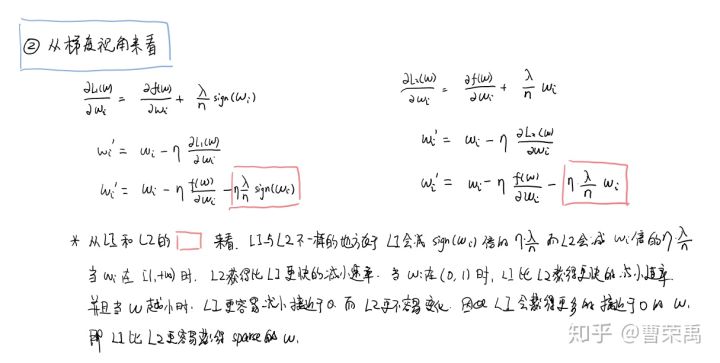 ② 从梯度视角来看
∂L₁(w)/∂wᵢ = ∂f(w)/∂wᵢ + λ/n sign(wᵢ)
wᵢ' = wᵢ - η ∂L₁(w)/∂wᵢ
wᵢ' = wᵢ - η f(w)/∂wᵢ - η λ/n sign(wᵢ)
∂L₂(w)/∂wᵢ = ∂f(w)/∂wᵢ + λ/n wᵢ
wᵢ' = wᵢ - η ∂L₂(w)/∂wᵢ
wᵢ' = wᵢ - η f(w)/∂wᵢ - η · λ/n wᵢ
* 从L1和L2的 来看, L1与L2不一样的地方在于 L1会减 sign(wᵢ) 倍的 η·λ/n 而L2会减 wᵢ倍的η·λ/n
当 wᵢ 在 [1,+∞) 时, L2获得比L1更快的减小速率. 当 wᵢ在 (0, 1) 时, L1比L2获得更快的减小速率
并且当 w 越小时, L1更容易减小接近于0. 而L2更不容易变化. 因此L1会获得更多的接近于0的 w.
即 L1比L2更容易获得 sparse的 w.
知乎 @曹荣禹